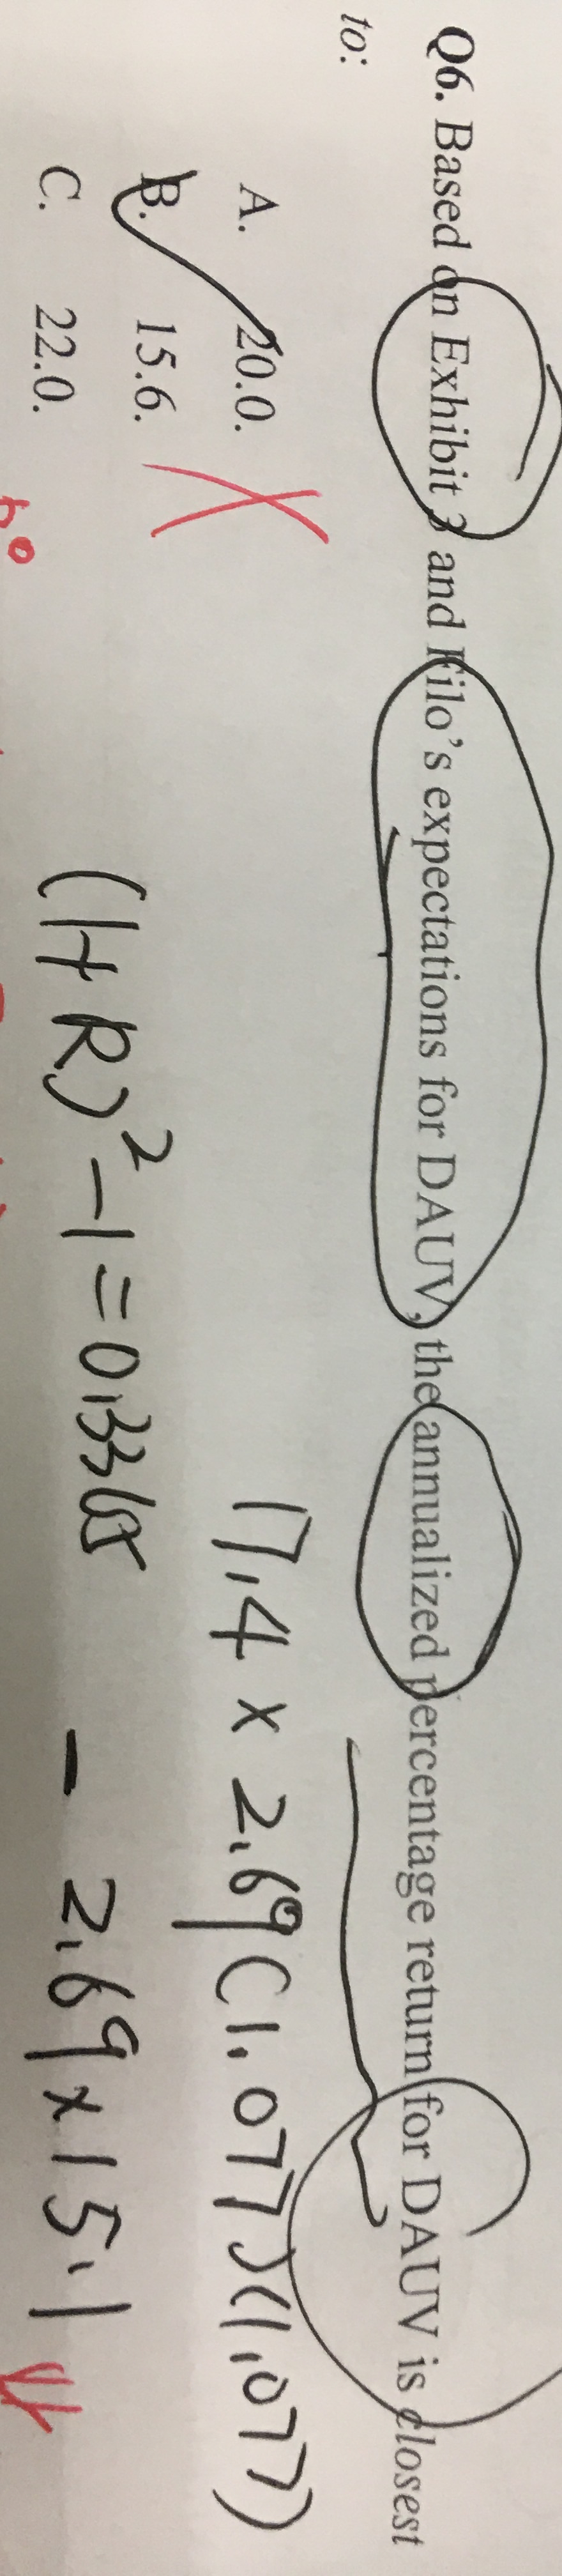 Q6. Based on Exhibit 3 and Kilo's expectations for DAUV, the annualized percentage return for DAUV is closest
to:
A. 20.0.
B. 15.6.
C. 22.0.
17.4 × 2.69(1.077)(1.077)
(1+R)²-1=0.3365 - 2.69×15.1